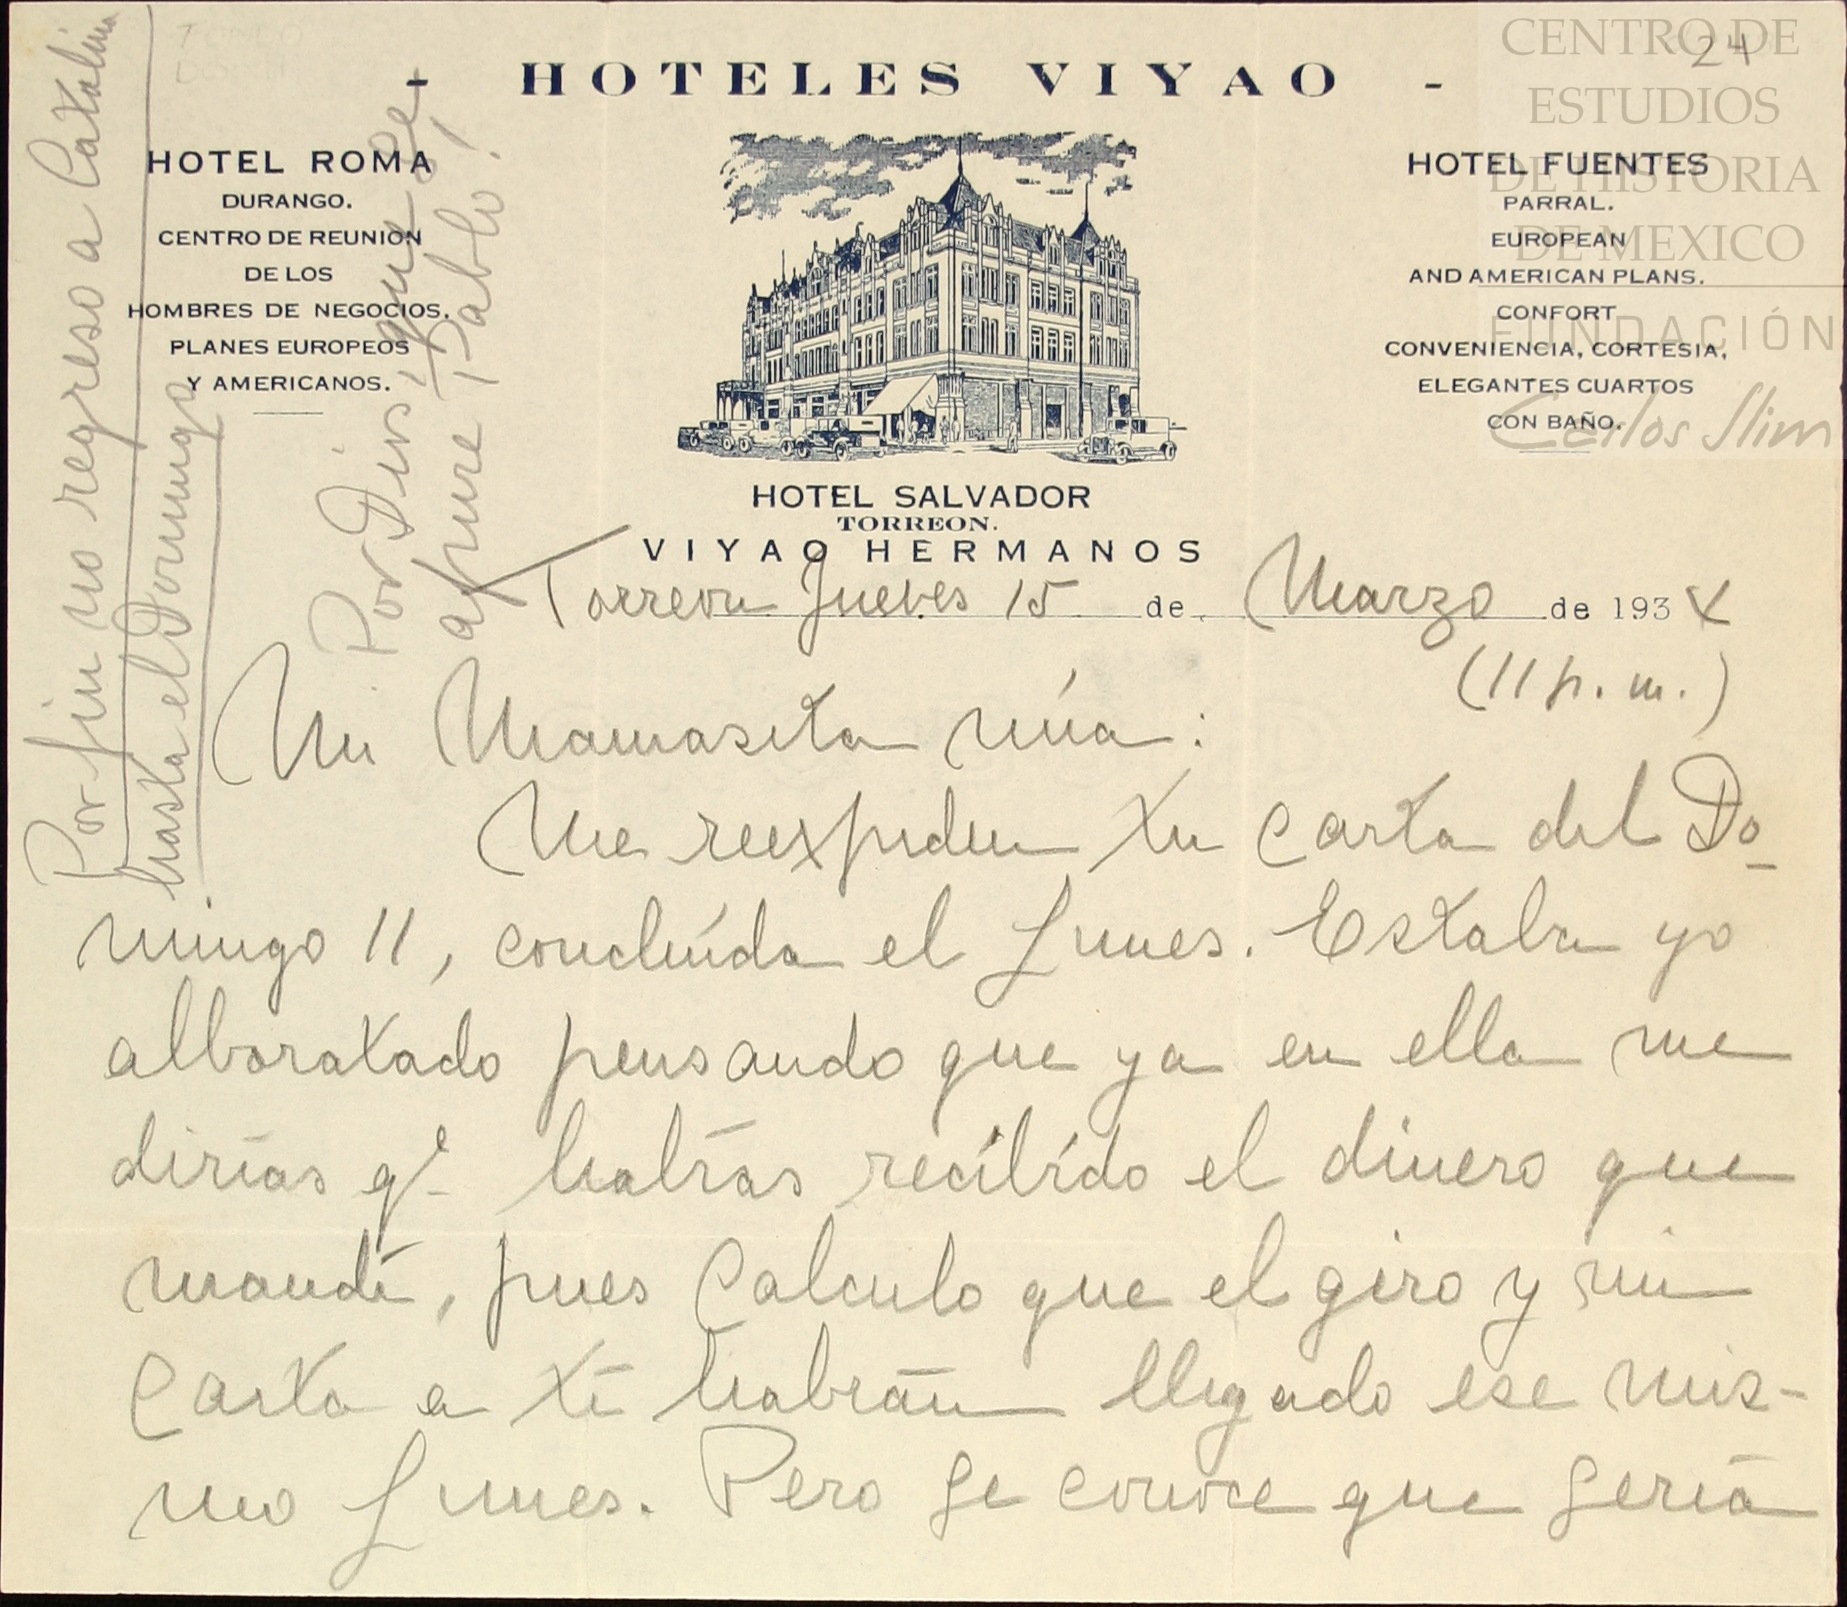 24
- HOTELES VIYAO -
HOTEL ROMA
DURANGO.
CENTRO DE REUNION
DE LOS
HOMBRES DE NEGOCIOS.
PLANES EUROPEOS
Y AMERICANOS.
HOTEL FUENTES
PARRAL.
EUROPEAN
AND AMERICAN PLANS.
CONFORT
CONVENIENCIA, CORTESIA,
ELEGANTES CUARTOS
CON BAÑO.
CENTRO DE
ESTUDIOS
DE HISTORIA
DE MEXICO
FUNDACIÓN
Carlos Slim
HOTEL SALVADOR
TORREON.
VIYAO HERMANOS
Torreon Jueves 15 de Marzo de 1934
(11 p. m.)
Mi Mamasita mía:
Me reexpiden tu carta del Do-
mingo 11, concluída el Lunes. Estaba yo
alborotado pensando que ya en ella me
dirías qe habías recibido el dinero que
mandé, pues calculo que el giro y mi
carta a tí habrán llegado ese mis-
mo Lunes. Pero se conoce que sería
Por fin no regreso a Catalina
hasta el Domingo
Por Dios, que se
apure Pablo!